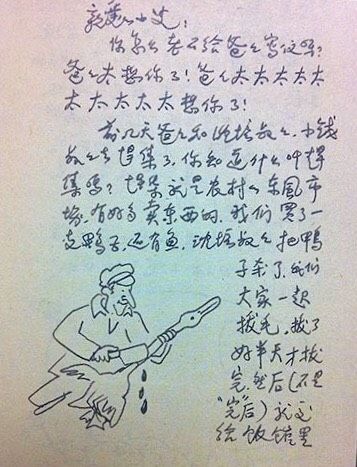 你怎么老不给爸々写信呀?
爸々太想你了!爸々太太太太太
太太太太太想你了!
前几天爸々和沈培叔々、小钱
叔々去趕集了,你知道什么叫趕
集吗?趕集就是农村的东風市
场,有好多卖东西的,我们買了一
支鸭子,还有鱼,沈培叔々把鸭
子杀了,我们
大家一起
拔毛,拔了
好半天才拔
完,然后(不是
"完"后)就送
给饭馆里